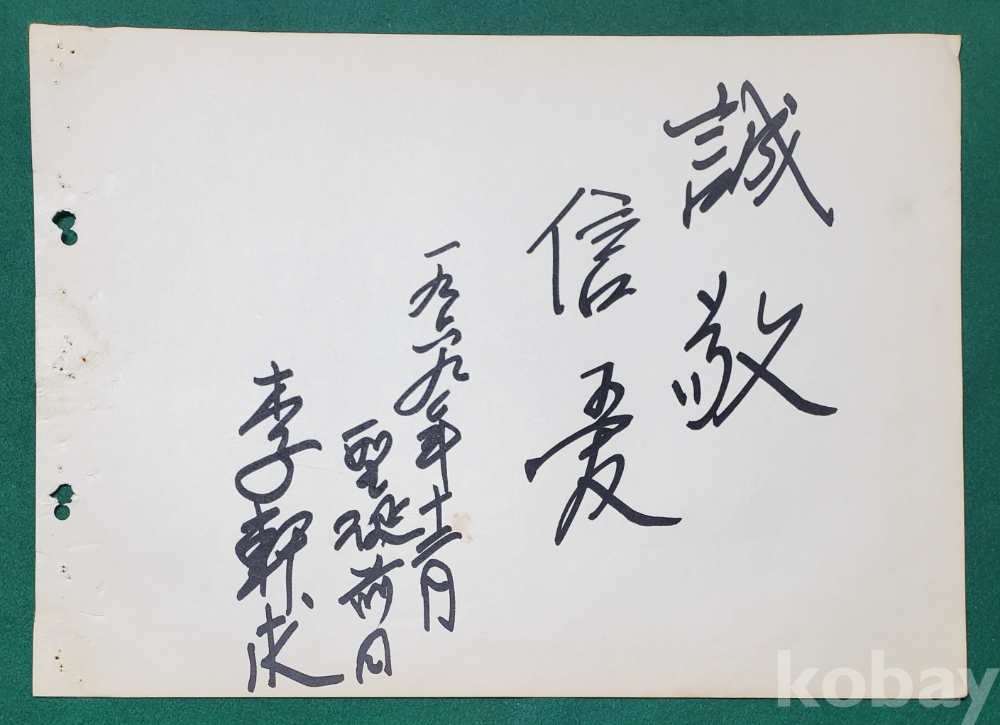 誠敬
信愛
一九六九年十二月
聖誕前日
李軒求
kobay